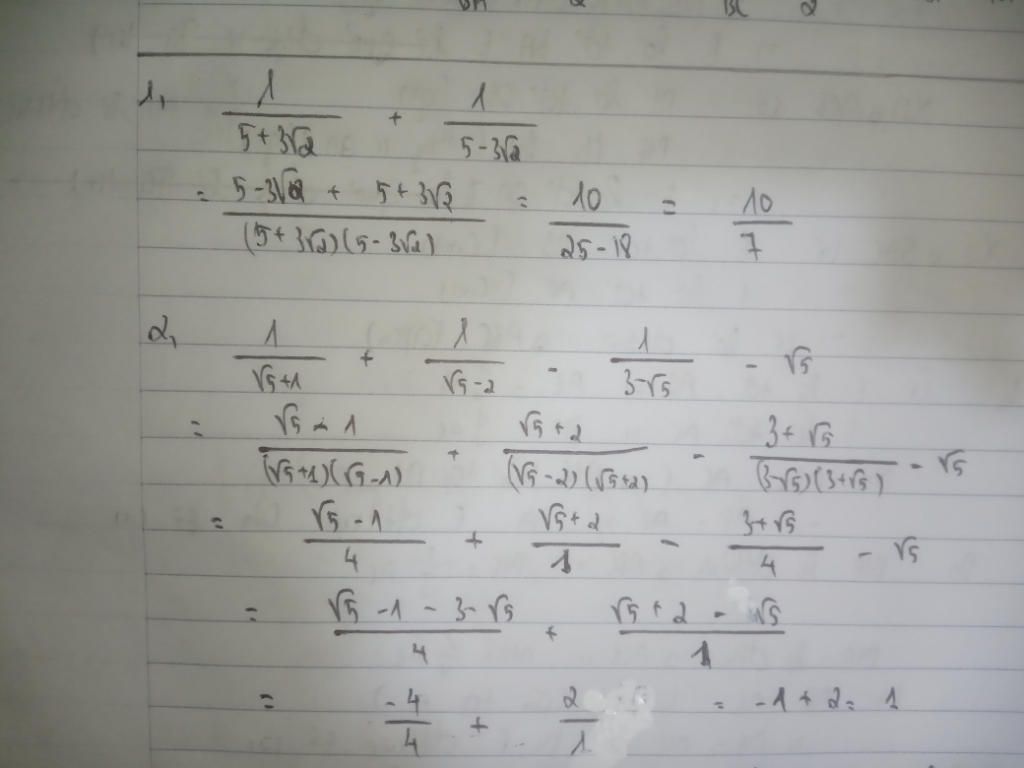 1, 1/(5+3√2) + 1/(5-3√2)
= (5-3√2 + 5+3√2)/((5+3√2)(5-3√2)) = 10/(25-18) = 10/7
2, 1/(√5+1) + 1/(√5-2) - 1/(3-√5) - √5
= (√5-1)/((√5+1)(√5-1)) + (√5+2)/((√5-2)(√5+2)) - (3+√5)/((3-√5)(3+√5)) - √5
= (√5-1)/4 + (√5+2)/1 - (3+√5)/4 - √5
= (√5-1-3-√5)/4 + (√5+2-√5)/1
= -4/4 + 2/1 = -1+2= 1